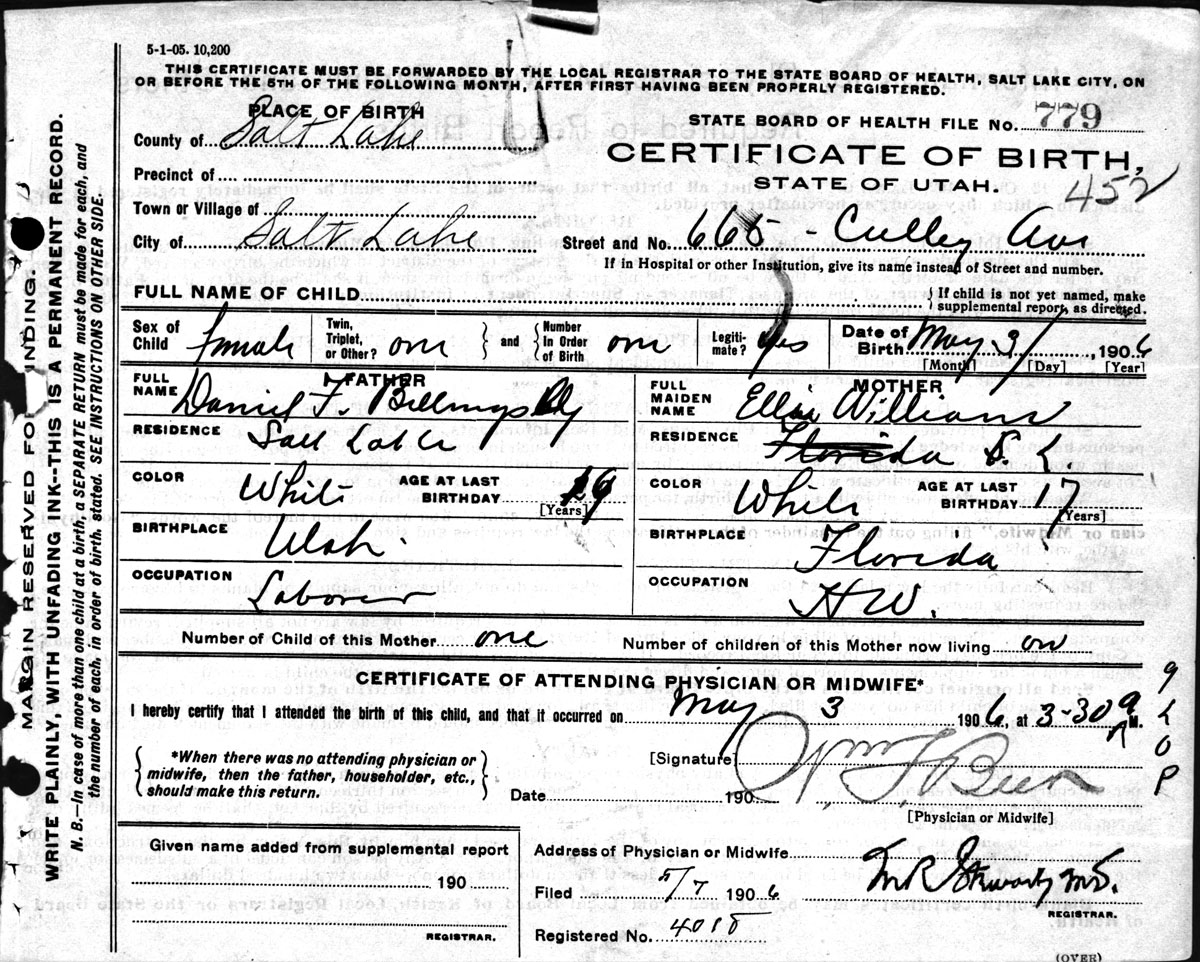 5-1-05. 10,200
THIS CERTIFICATE MUST BE FORWARDED BY THE LOCAL REGISTRAR TO THE STATE BOARD OF HEALTH, SALT LAKE CITY, ON
OR BEFORE THE 5TH OF THE FOLLOWING MONTH, AFTER FIRST HAVING BEEN PROPERLY REGISTERED.
PLACE OF BIRTH
County of Salt Lake
STATE BOARD OF HEALTH FILE No. 779
CERTIFICATE OF BIRTH,
STATE OF UTAH.
452
Precinct of
Town or Village of
City of Salt Lake
Street and No. 665 - Culley Ave
If in Hospital or other Institution, give its name instead of Street and number.
FULL NAME OF CHILD
If child is not yet named, make
supplemental report, as directed.
Sex of Child Female
Twin, Triplet, or Other? one
and
Number In Order of Birth one
Legiti-mate? Yes
Date of Birth May 3/, 1906
[Month] [Day] [Year]
FATHER
FULL NAME Daniel F. Billingsly
RESIDENCE Salt Lake
COLOR White
AGE AT LAST BIRTHDAY 29
[Years]
BIRTHPLACE Utah
OCCUPATION Laborer
MOTHER
FULL MAIDEN NAME Williams
RESIDENCE Florida S. L.
COLOR White
AGE AT LAST BIRTHDAY 17
[Years]
BIRTHPLACE Florida
OCCUPATION H W.
Number of Child of this Mother one
Number of children of this Mother now living one
CERTIFICATE OF ATTENDING PHYSICIAN OR MIDWIFE*
I hereby certify that I attended the birth of this child, and that it occurred on May 3 1906, at 3-30 A M.
*When there was no attending physician or
midwife, then the father, householder, etc.,
should make this return.
[Signature]
Date 190 6
[Physician or Midwife]
Given name added from supplemental report
190
REGISTRAR.
Address of Physician or Midwife
Filed 5/7 1906
M.D.
REGISTRAR.
Registered No. 4018
(OVER)
MARGIN RESERVED FOR BINDING.
WRITE PLAINLY, WITH UNFADING INK--THIS IS A PERMANENT RECORD.
N. B.—In case of more than one child at a birth, a SEPARATE RETURN must be made for each, and
the number of each, in order of birth, stated. SEE INSTRUCTIONS ON OTHER SIDE.